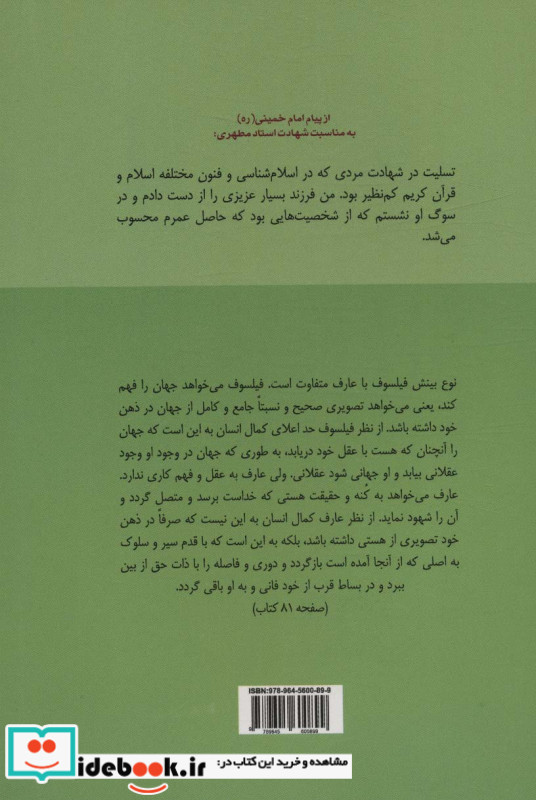 از پیام امام خمینی(ره)
به مناسبت شهادت استاد مطهری:
تسلیت در شهادت مردی که در اسلام‌شناسی و فنون مختلفه اسلام و
قرآن کریم کم‌نظیر بود. من فرزند بسیار عزیزی را از دست دادم و در
سوگ او نشستم که از شخصیت‌هایی بود که حاصل عمرم محسوب
می‌شد.
نوع بینش فیلسوف با عارف متفاوت است. فیلسوف می‌خواهد جهان را فهم
کند، یعنی می‌خواهد تصویری صحیح و نسبتاً جامع و کامل از جهان در ذهن
خود داشته باشد. از نظر فیلسوف حد اعلای کمال انسان به این است که جهان
را آنچنان که هست با عقل خود دریابد، به طوری که جهان در وجود او وجود
عقلانی بیابد و او جهانی شود عقلانی. ولی عارف به عقل و فهم کاری ندارد.
عارف می‌خواهد به کُنه و حقیقت هستی که خداست برسد و متصل گردد و
آن را شهود نماید. از نظر عارف کمال انسان به این نیست که صرفاً در ذهن
خود تصویری از هستی داشته باشد، بلکه به این است که با قدم سیر و سلوک
به اصلی که از آنجا آمده است بازگردد و دوری و فاصله را با ذات حق از بین
ببرد و در بساط قرب از خود فانی و به او باقی گردد.
(صفحه ۸۱ کتاب)
ISBN:978-964-5600-89-9
مشاهده و خرید این کتاب در:
idebook.ir